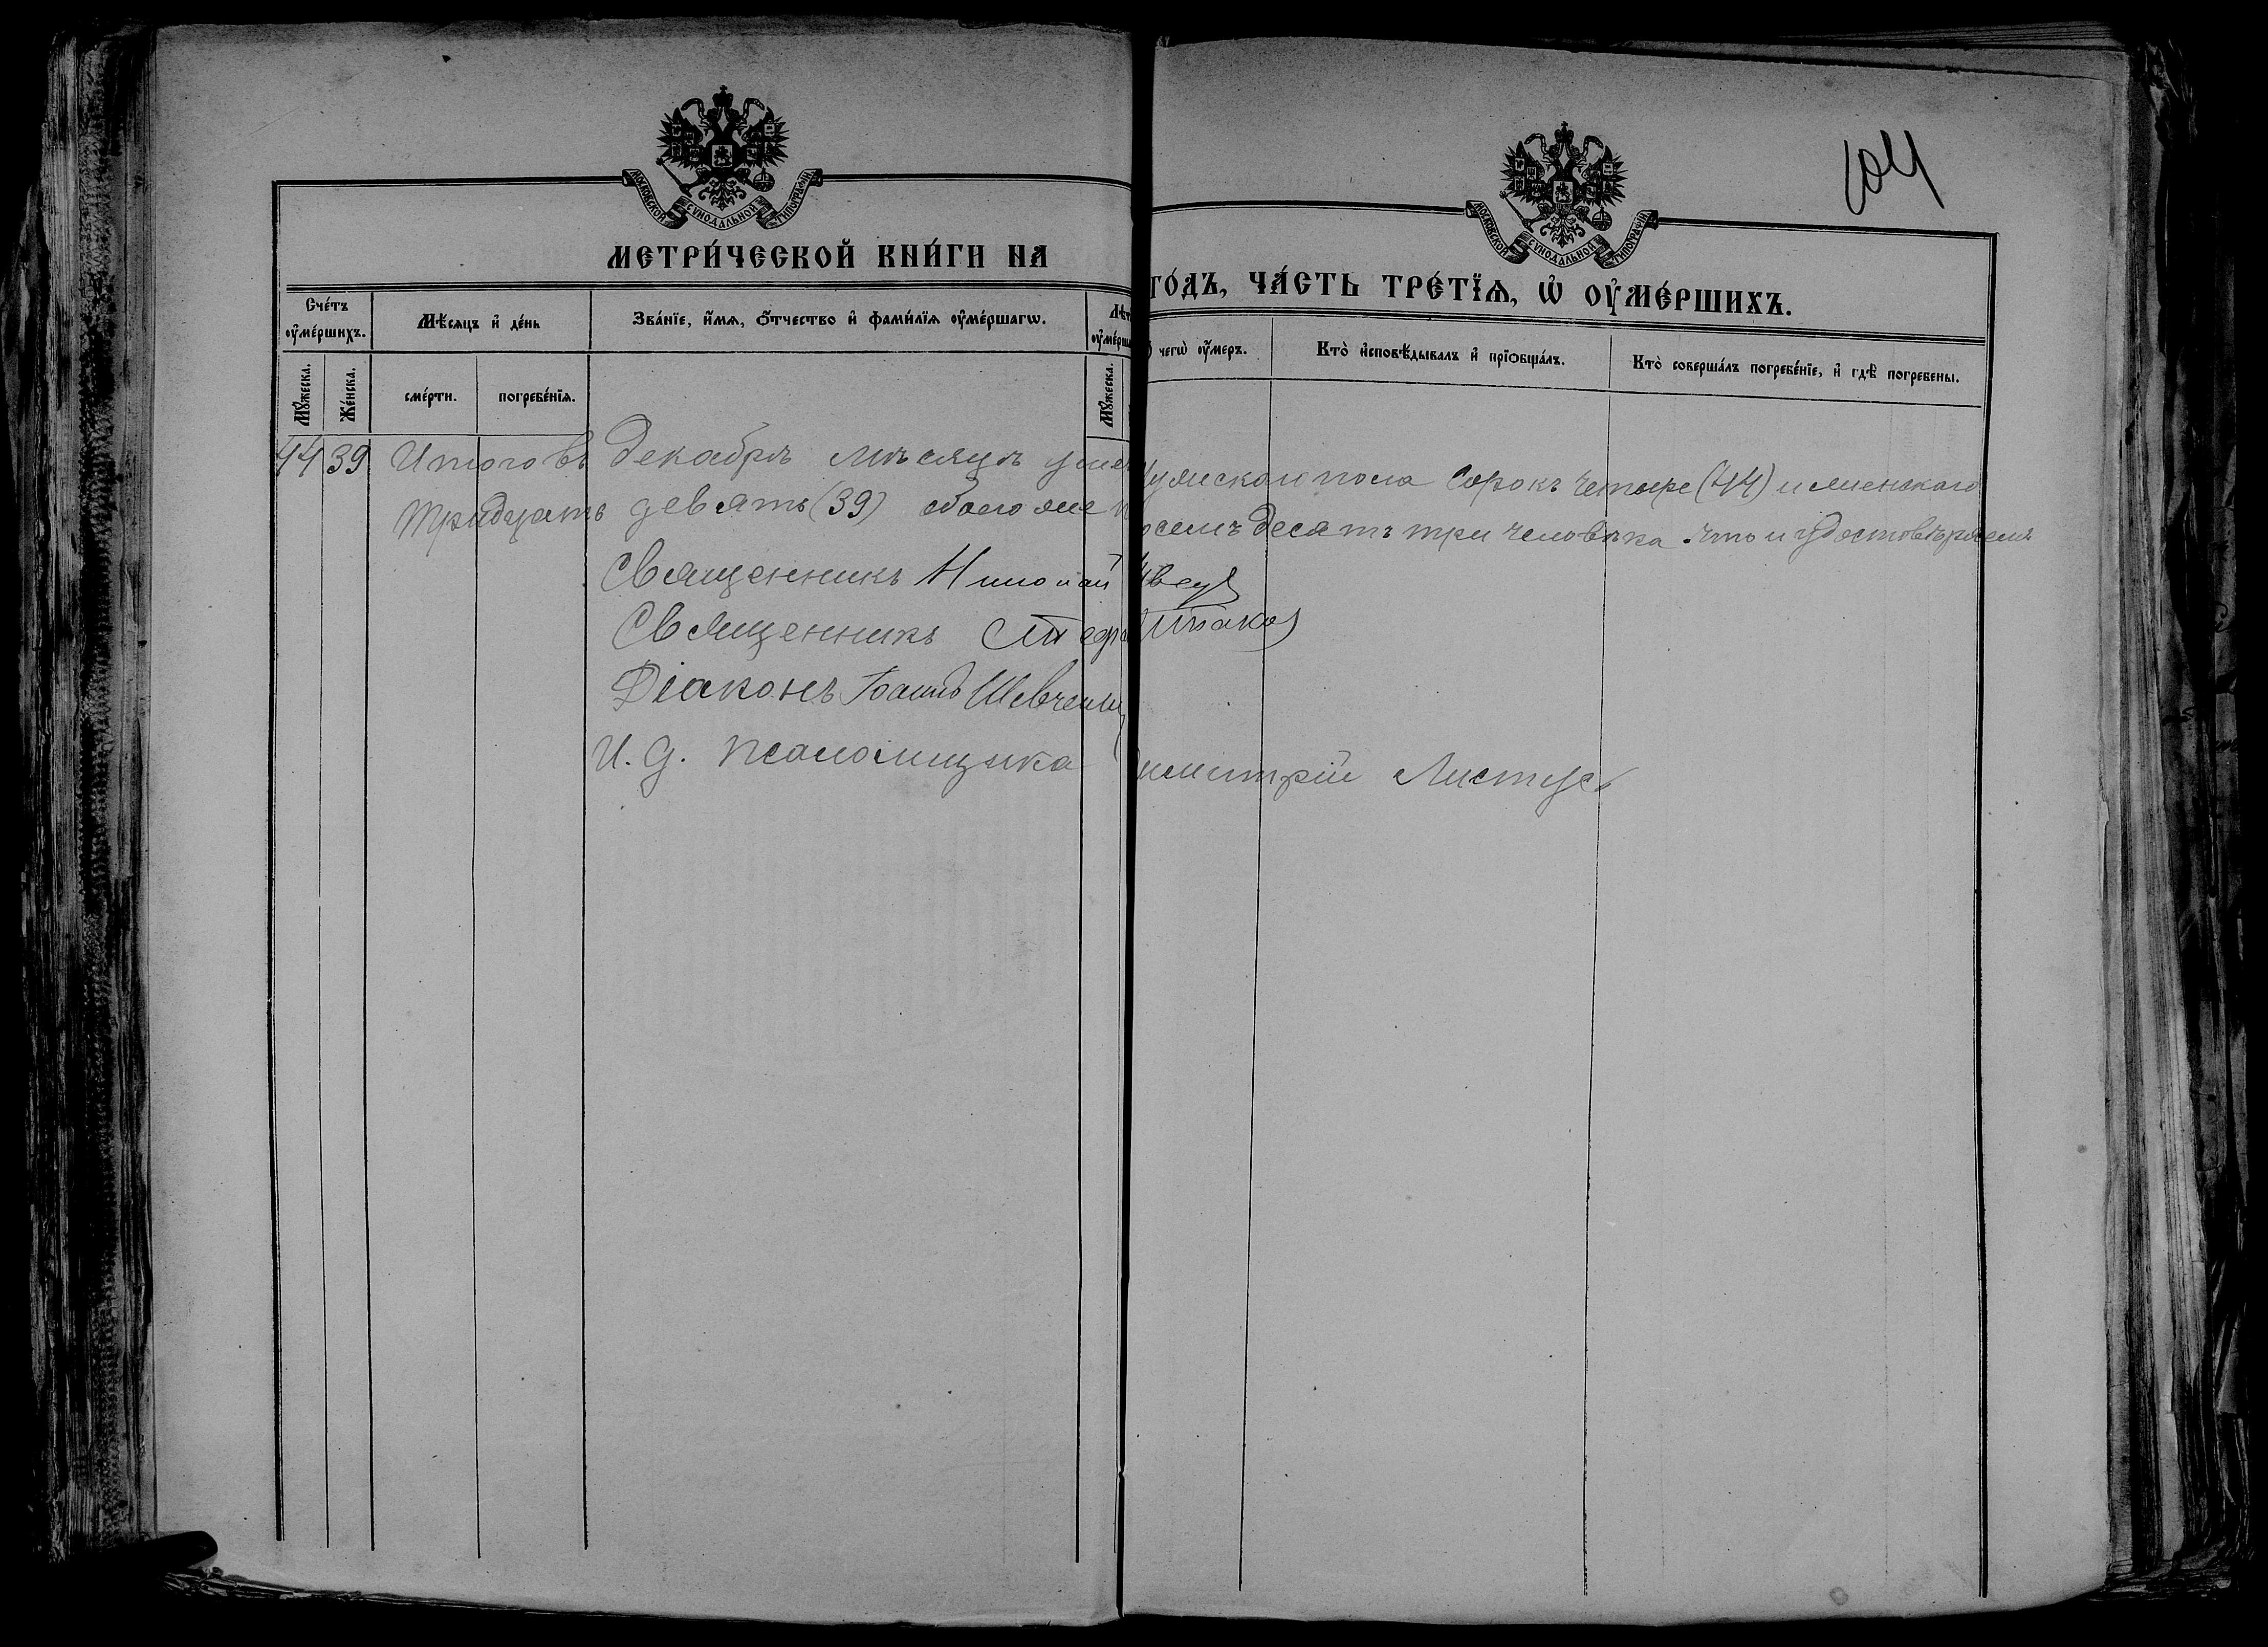 104
МОСКОВСКОЙ СУНОДАЛЬНОЙ ТИПОГРАФІИ
МОСКОВСКОЙ СУНОДАЛЬНОЙ ТИПОГРАФІИ
МЕТРИ́ЧЕСКОЙ КНИ́ГИ НА
ГО́ДЪ, ЧА́СТЬ ТРЕ́ТІѦ, Ѽ ОУ҆МЕ́РШИХЪ.
Сче́тъ оу҆ме́ршихъ.
Мѣ́сяцъ и҆ де́нь
Зва́нїе, и҆́мѧ, ѻ҆́тчество и҆ фами́лїѧ оу҆ме́ршагѡ.
чегѡ̀ оу҆́меръ.
Кто̀ и҆сповѣ́дывалъ и҆ прїѻбща́лъ.
Кто̀ соверша́лъ погребе́нїе, и҆ гдѣ̀ погребены.
Мꙋ́жеска.
Же́нска.
сме́рти.
погребе́нїѧ.
Мꙋ́жеска.
44 39 Итого въ Декабрѣ мѣсяцѣ Мужскаго пола Сорокъ четыре (44) и женскаго
тридцать девять (39) обоего же восемьдесятъ три человѣка. Что и удостовѣряемъ
Священникъ Николай
Священникъ
Діаконъ Іоаннъ Шевченко
И. д. псаломщика Димитрій Листусъ